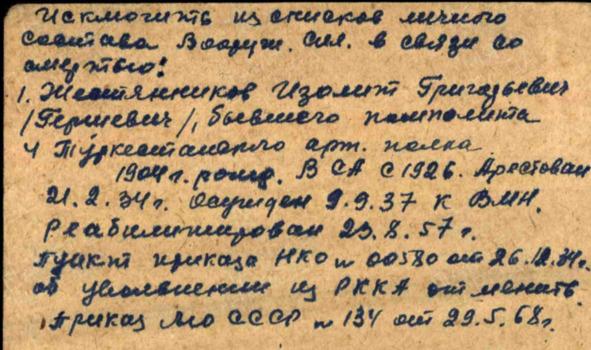 Исключить из списков личного
состава Вооруж. Сил. в связи со
смертью:
1. Жестянников Изолит Григорьевич
/Гершевич/, бывшего помполита
4 Туркестанского арт. полка
1904 г. рожд. В СА с 1926. Арестован
21.2.34г. осужден 9.9.37 к ВМН.
Реабилитирован 23.8.57 г.
Пункт приказа НКО № 00580 от 26.12.34г.
об увольнении из РККА отменить.
Приказ МО СССР № 134 от 29.5.68г.